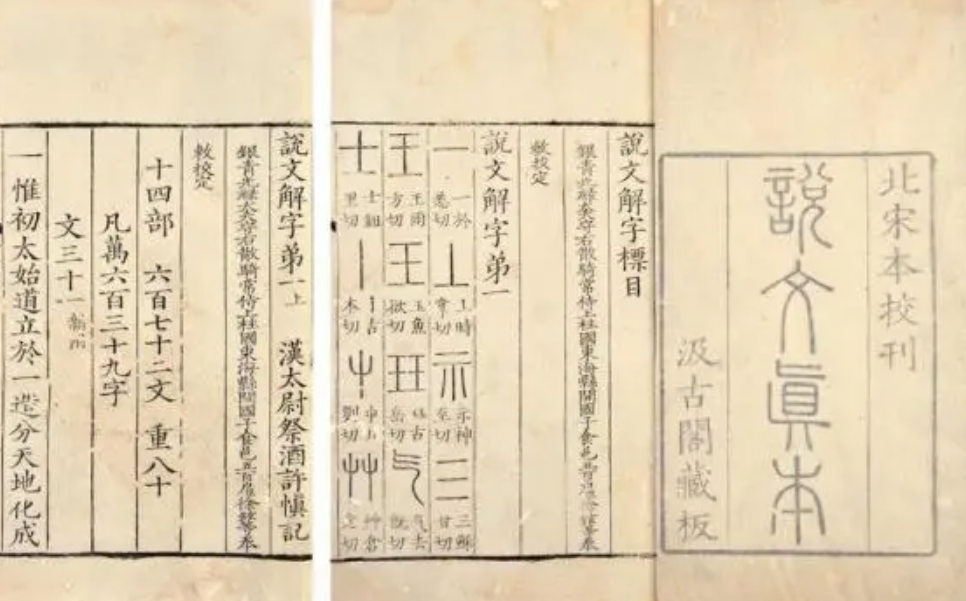 北宋本校刊
說文眞本
汲古閣藏板
說文解字標目
銀青光祿大夫守右散騎常侍上柱國東海縣開國子食邑五百戶徐鉉等奉
敕校定
說文解字弟一
一 一於悉切 丄 丄時掌切 示 示神至切 三 三穌甘切
王 王雨方切 玉 玉魚欲切 玨 玨古岳切 气 气去既切
士 士鉏里切 丨 丨古本切 屮 屮丑列切 艸 艸倉老切
說文解字弟一上 漢太尉祭酒許慎記
銀青光祿大夫守右散騎常侍上柱國東海縣開國子食邑五百戶徐鉉等奉
敕校定
十四部 六百七十二文 重八十
凡萬六百三十九字
文三十一新附
一惟初太始道立於一造分天地化成